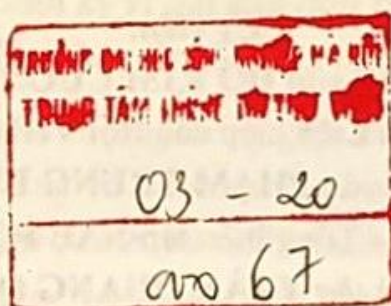 TRƯỜNG ĐẠI HỌC SƯ PHẠM HÀ NỘI
TRUNG TÂM THÔNG TIN THƯ VIỆN
03 - 20
00067